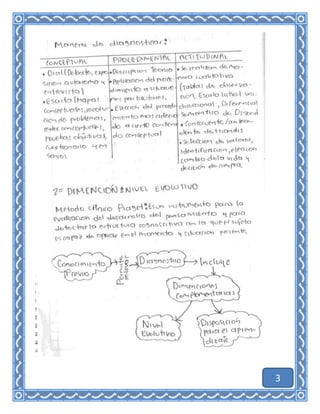 Manera de diagnosticar:
CONCEPTUAL
PROCEDIMENTAL
ACTITUDINAL
• Oral (Debate, expo
sición autonoma y
entrevista)
• Escrito (Mapas
conceptuales, resolu-
ción de problemas,
redes conceptuales,
pruebas objetivas,
cuestionario y en
sayos.
• Descripción Teorico
• Aplicación del proce
dimiento a situacio-
nes particulares,
• Elección del procedi
miento mas adecua
do al cierto conteni
do conceptual
• Se realizan de ma-
nera cualitativa
(Tablas de observa-
ción, Escala
sumativa, Diferencial
Semantico de Osgood
• Selección de valores,
Identificación, elección
cambio de la vida y
decición de compra,
2ª DIMENCIÓN: NIVEL EVOLUTIVO
Método clínico Piaget: Es un instrumento para la
evaluación del desarrollo del pensamiento y para
detectar la estructura cognoscitiva con la que el sujeto
es capaz de operar en el momento y situación presente,
Conocimiento
Previo
Diagnostico
Incluye
Dimenciones
complementarias
Nivel
Evolutivo
Disposición
para el apren-
dizaje
3